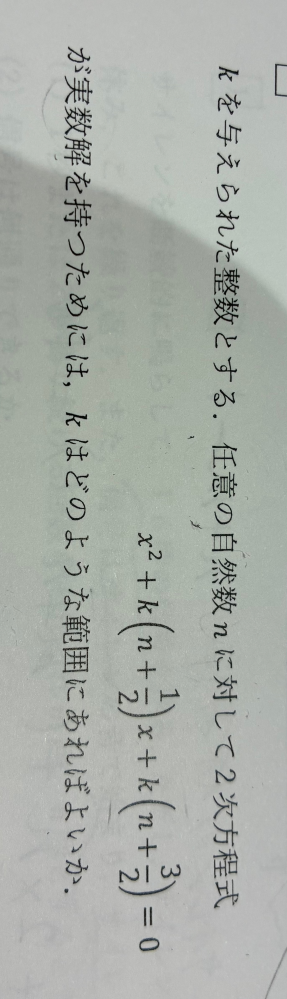 kを与えられた整数とする．任意の自然数nに対して2次方程式
x² + k(n + 1/2)x + k(n + 3/2) = 0
が実数解を持つためには，kはどのような範囲にあればよいか．